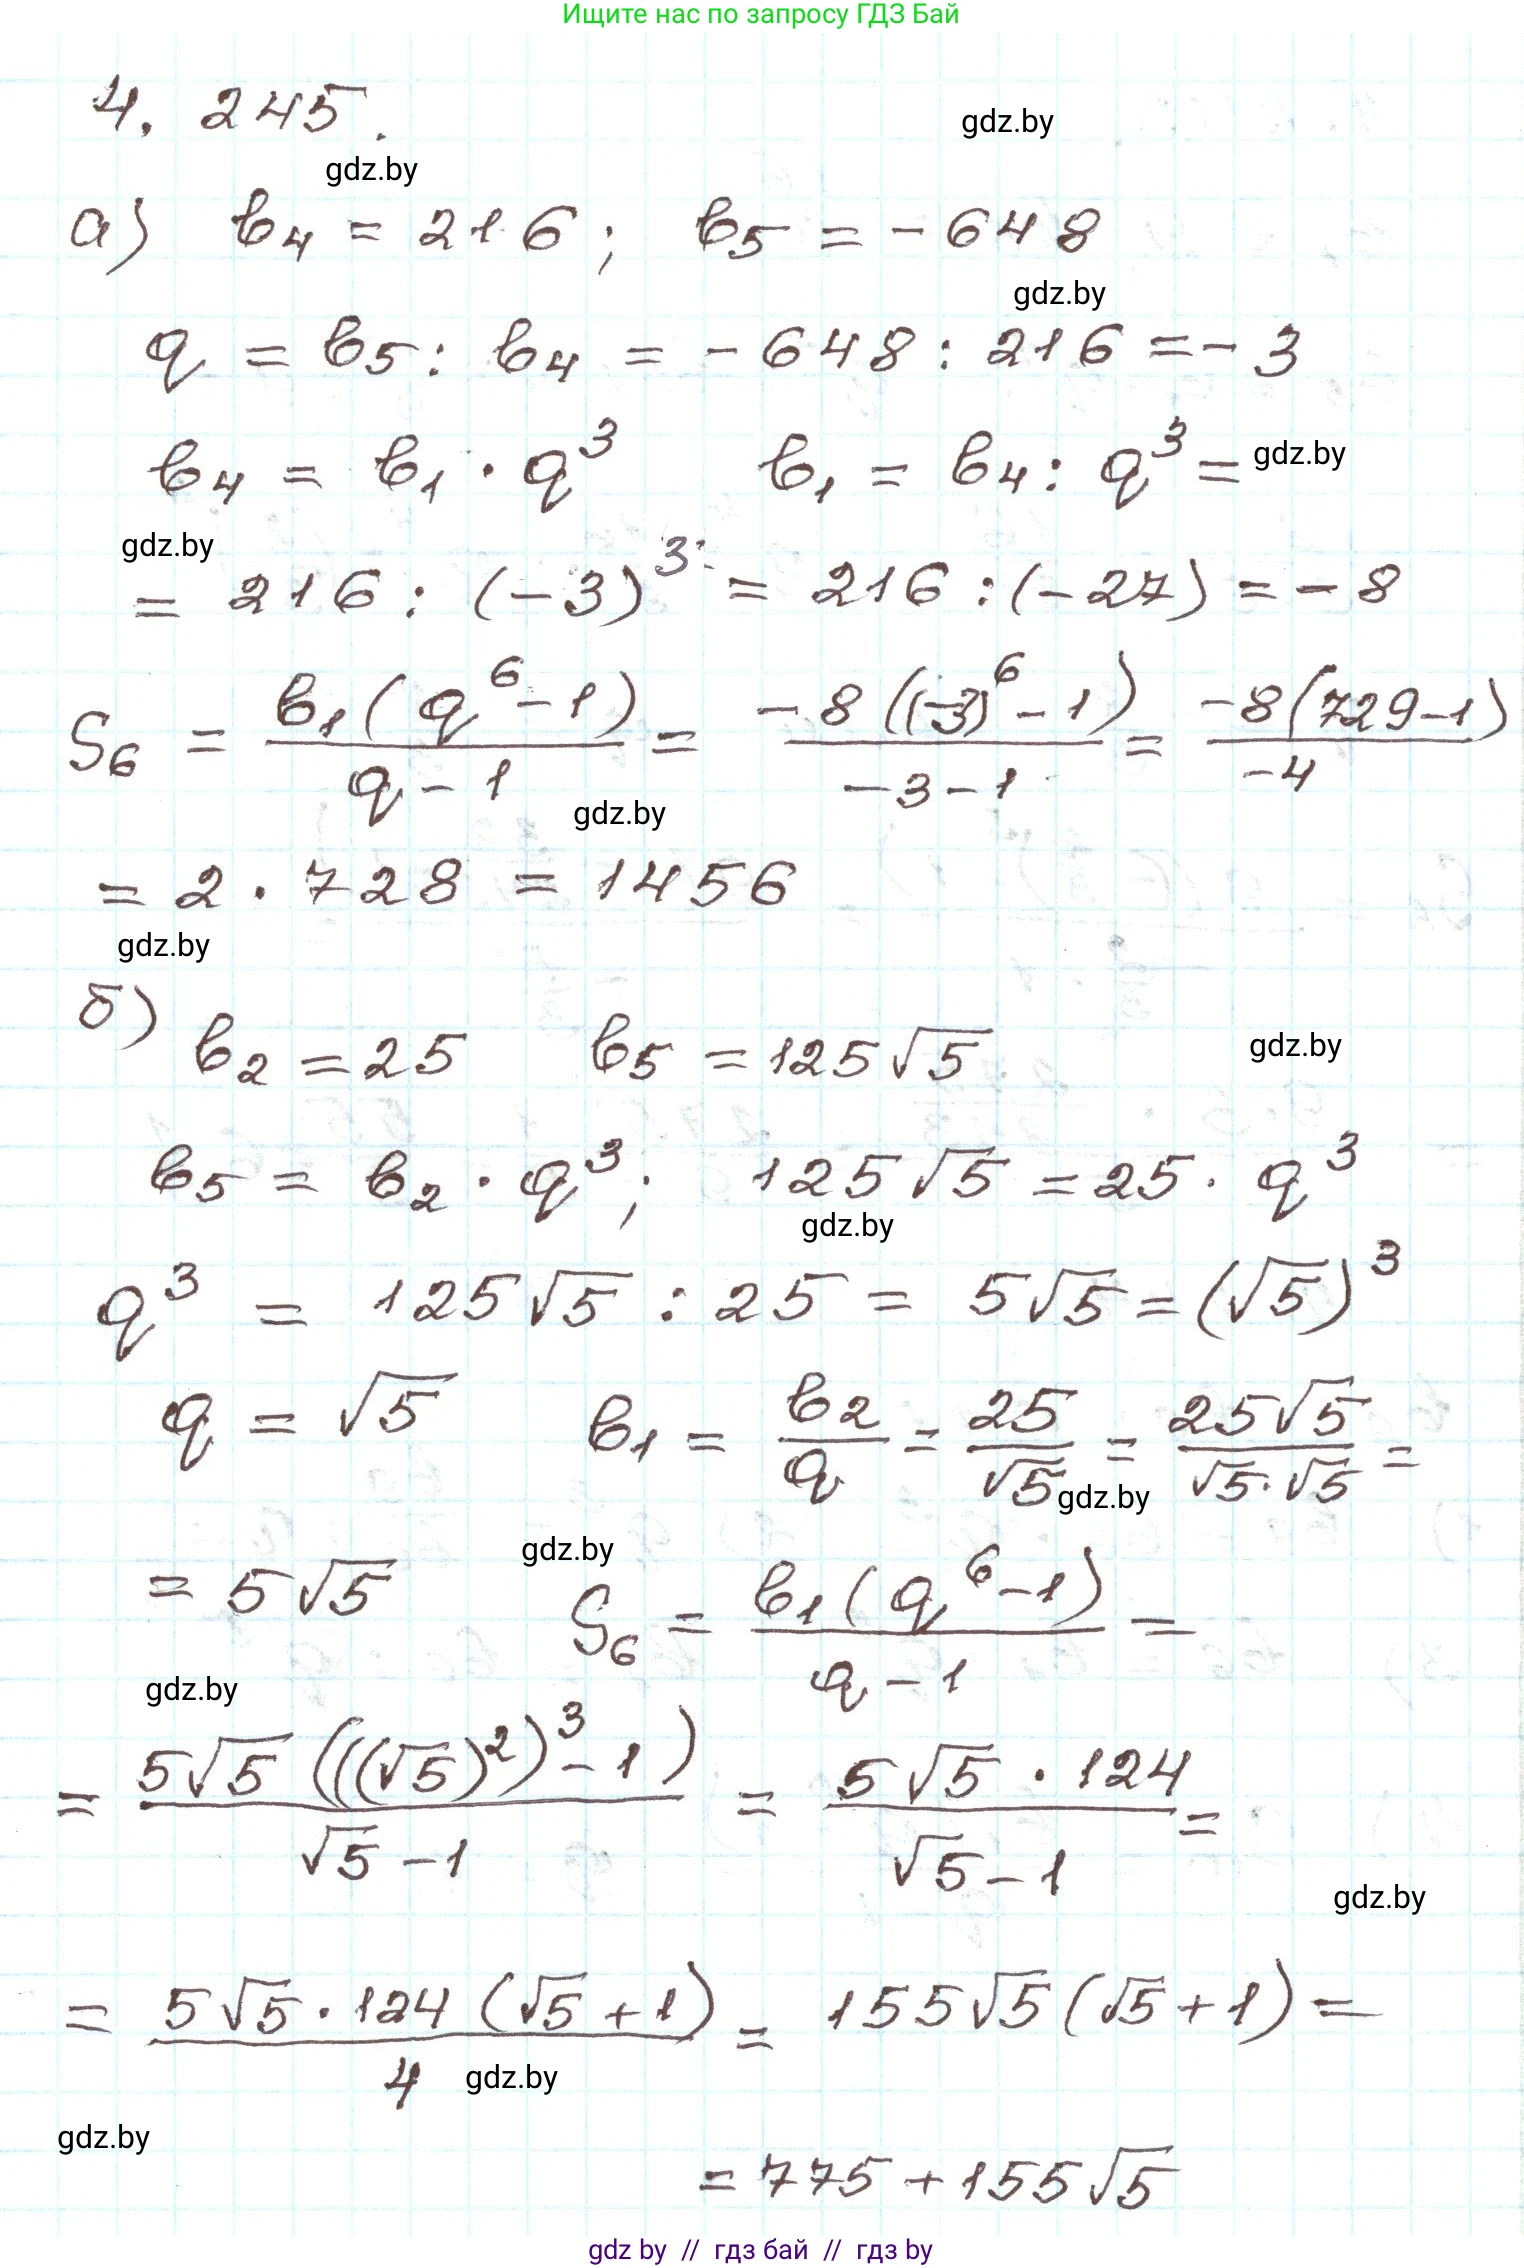 Ищите нас по запросу ГДЗ Бай
4. 245.
gdz.by
gdz.by
а) b₄ = 216; b₅ = -648
gdz.by
q = b₅ : b₄ = -648 : 216 = -3
b₄ = b₁ · q³ b₁ = b₄ : q³ =
gdz.by
gdz.by
= 216 : (-3)³ = 216 : (-27) = -8
S₆ = b₁(q⁶-1)/(q-1) = -8((-3)⁶-1)/(-3-1) = -8(729-1)/(-4)
gdz.by
= 2 · 728 = 1456
gdz.by
б) b₂ = 25 b₅ = 125√5
gdz.by
b₅ = b₂ · q³; 125√5 = 25 · q³
gdz.by
q³ = 125√5 : 25 = 5√5 = (√5)³
q = √5 b₁ = b₂/q = 25/√5 = 25√5/(√5·√5) =
gdz.by
gdz.by
= 5√5 S₆ = b₁(q⁶-1)/(q-1) =
gdz.by
= 5√5(((√5)²)³-1)/(√5-1) = 5√5 · 124/(√5-1) =
gdz.by
= 5√5 · 124(√5+1)/4 = 155√5(√5+1) =
gdz.by
gdz.by
= 775 + 155√5
gdz by // гдз бай // гдз by